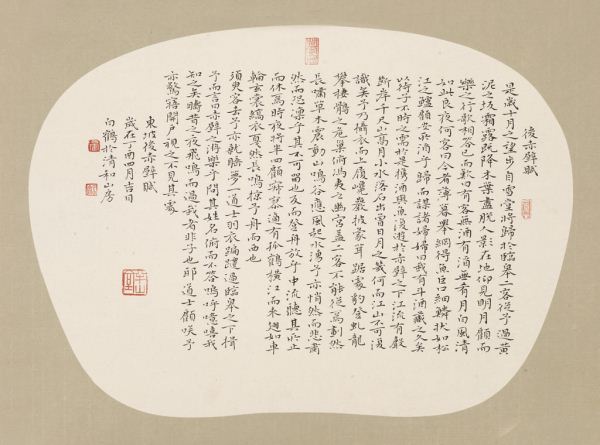 後赤壁賦
是歲十月之望步自雪堂將歸於臨皋二客從予過黃
泥之坂霜露既降木葉盡脫人影在地仰見明月顧而
樂之行歌相答已而歎曰有客無酒有酒無肴月白風清
如此良夜何客曰今者薄暮舉網得魚巨口細鱗狀如松
江之鱸顧安所酒乎歸而謀諸婦婦曰我有斗酒藏之久矣
以待子不時之需於是攜酒與魚復遊於赤壁之下江流有聲
斷岸千尺山高月小水落石出曾日月之幾何而江山不可復
識矣予乃攝衣而上履巉巖披蒙茸踞虎豹登虬龍
攀棲鶻之危巢俯馮夷之幽宮蓋二客不能從焉劃然
長嘯草木震動山鳴谷應風起水湧予亦悄然而悲肅
然而恐凜乎其不可留也反而登舟放乎中流聽其所止
而休焉時夜將半四顧寂寥適有孤鶴橫江而來翅如車
輪玄裳縞衣戛然長鳴掠予舟而西也
須臾客去予亦就睡夢一道士羽衣蹁躚過臨皋之下揖
予而言曰赤壁之遊樂乎問其姓名俯而不答嗚呼噫嘻我
知之矣疇昔之夜飛鳴而過我者非子也耶道士顧笑予
亦驚寤開戶視之不見其處
東坡後赤壁賦
歲在丁酉四月吉日
向鶴於清和山房